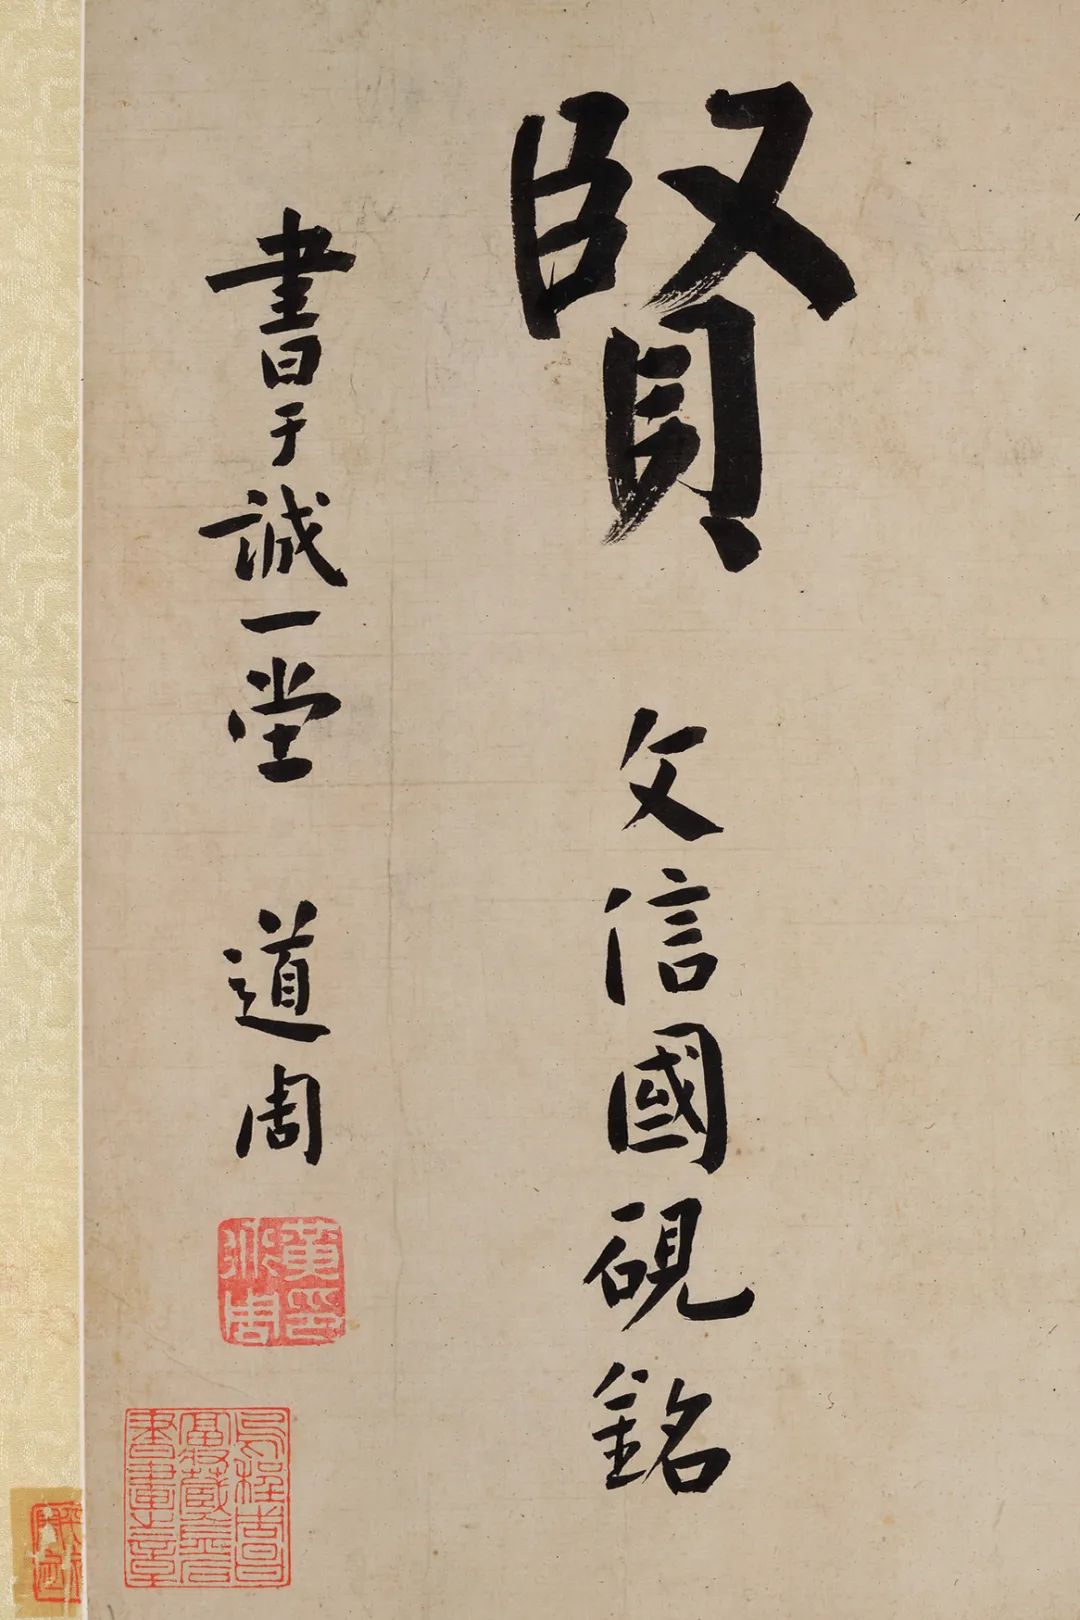 賢
文信國硯銘
書于誠一堂
道周
黃道周印